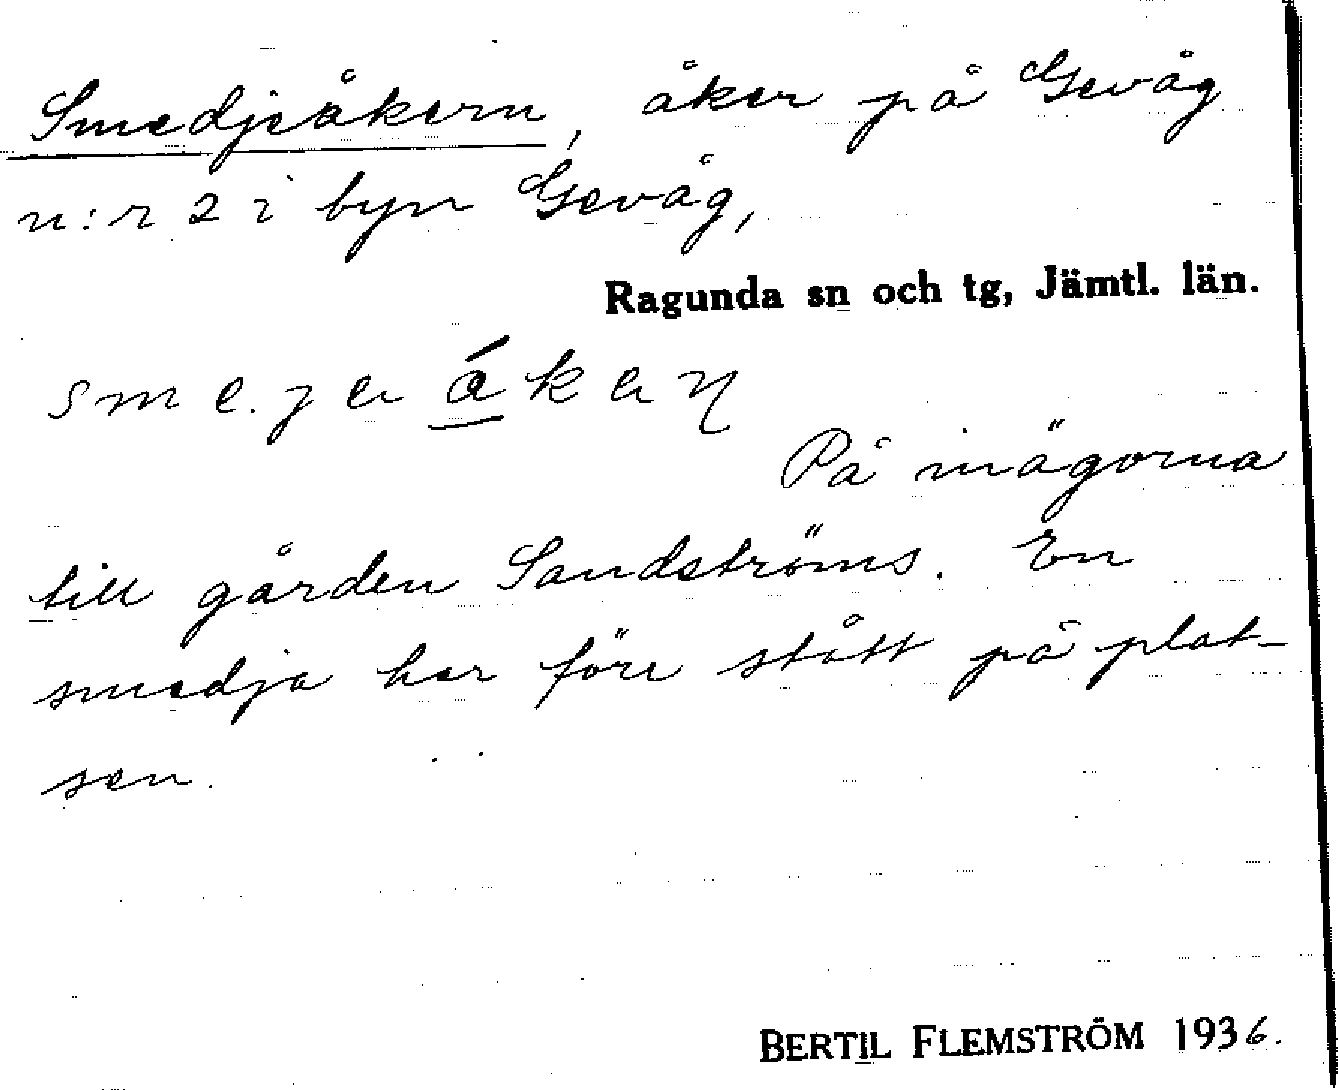 Smedjeåkern, åker på Gevåg
n:r 2 i byn Gevåg,
Ragunda sn och tg, Jämtl. län.
På inägorna
till gården Sandströms. En
smedja har förr stått på plat-
sen.
BERTIL FLEMSTRÖM 1936.